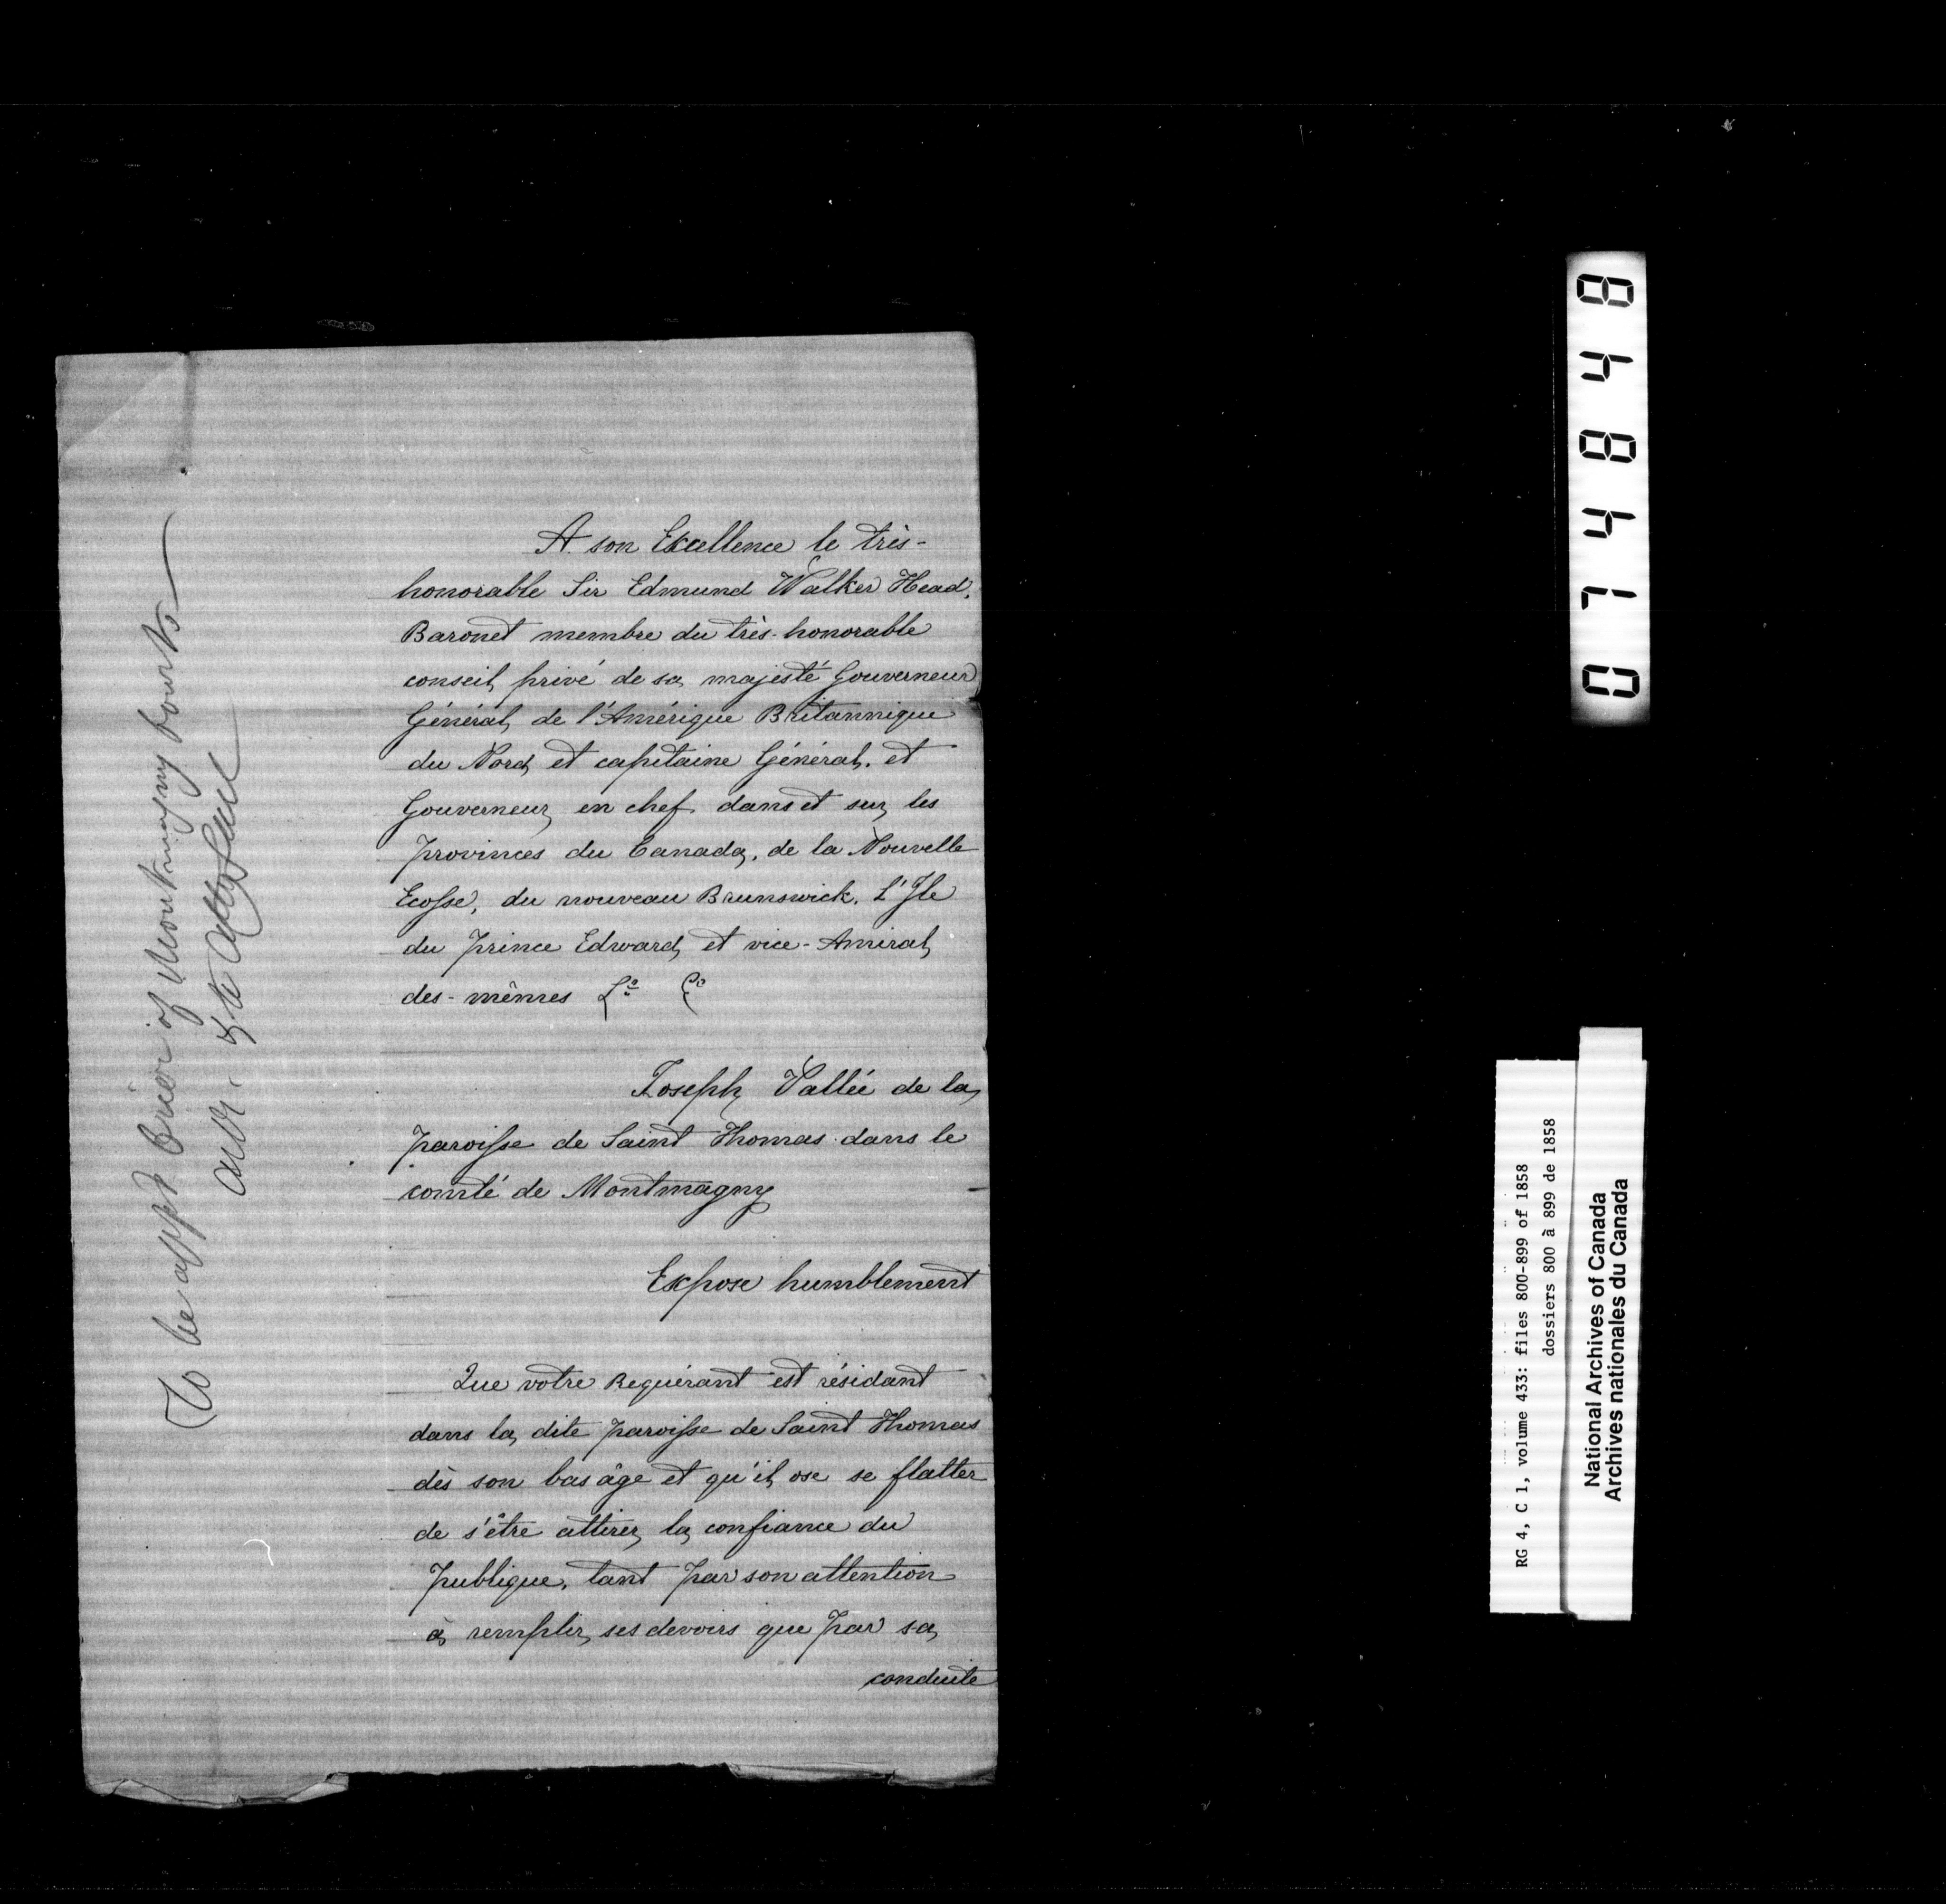 A son Excellence le très-
honorable Sir Edmund Walker Head,
Baronet membre du très-honorable
conseil privé de sa majesté Gouverneur
Général de l'Amérique Britannique
du Nord et capitaine Général, et
Gouverneur en chef dans et sur les
provinces du Canada, de la Nouvelle
Ecosse, du nouveau Brunswick, L'Ile
du prince Edward et vice-Amiral
des-mêmes &c &c
Joseph Vallée de la
paroisse de Saint Thomas dans le
comté de Montmagny
Expose humblement
Que votre Requérant est résidant
dans la dite paroisse de Saint Thomas
dès son bas âge et qu'il ose se flatter
de s'être attirer la confiance du
publique, tant par son attention
à remplir ses devoirs que par sa
conduite
To be appd Crier of Montmagny Courts
074848
RG 4, C 1, volume 433: files 800-899 of 1858
dossiers 800 à 899 de 1858
National Archives of Canada
Archives nationales du Canada